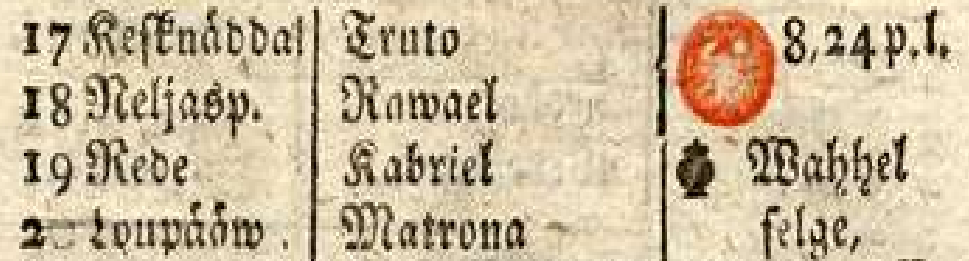 17 Keſknäddal Truto 8,24 p.l.
18 Neljasp. Rawael
19 Rede Kabriel Wahhel
2 Loupääw. Matrona ſelge,